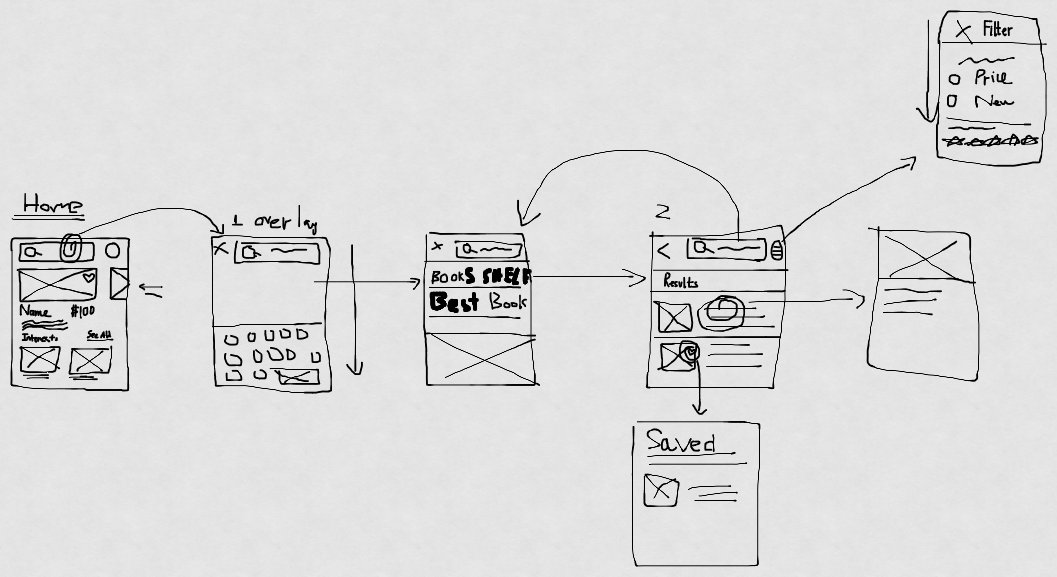 Home
Name #100
Interests See All
1 overlay
BookS SHELF
Best Book
2
Results
Saved
X Filter
Price
New